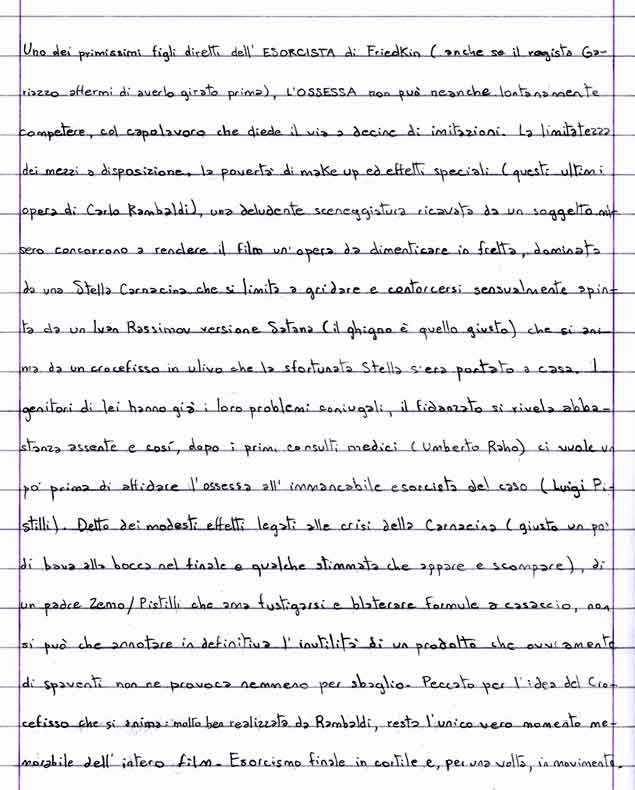 Uno dei primissimi figli diretti dell' ESORCISTA di Friedkin (anche se il regista Ga-
riazzo affermi di averlo girato prima), L'OSSESSA non può neanche lontanamente
competere, col capolavoro che diede il via a decine di imitazioni. La limitatezza
dei mezzi a disposizione, la povertà di make up ed effetti speciali (questi ultimi
opera di Carlo Rambaldi), una deludente sceneggiatura ricavata da un soggetto mi-
sero concorrono a rendere il film un'opera da dimenticare in fretta, dominata
da una Stella Carnacina che si limita a gridare e contorcersi sensualmente spin-
ta da un Ivan Rassimov versione Satana (il ghigno è quello giusto) che si ani-
ma da un crocefisso in ulivo che la sfortunata Stella s'era portato a casa. I
genitori di lei hanno già i loro problemi coniugali, il fidanzato si rivela abba-
stanza assente e così, dopo i primi consulti medici (Umberto Raho) ci vuole un
po' prima di affidare l'ossessa all' immancabile esorcista del caso (Luigi Pi-
stilli). Detto dei modesti effetti legati alle crisi della Carnacina (giusto un po'
di bava alla bocca nel finale e qualche stimmata che appare e scompare), di
un padre Zemo/Pistilli che ama fustigarsi e blaterare formule a casaccio, non
si può che annotare in definitiva l'inutilità di un prodotto che ovviamente
di spaventi non ne provoca nemmeno per sbaglio. Peccato per l'idea del Cro-
cefisso che si anima: molto ben realizzata da Rambaldi, resta l'unico vero momento me-
morabile dell' intero film. Esorcismo finale in cortile e, per una volta, in movimento.